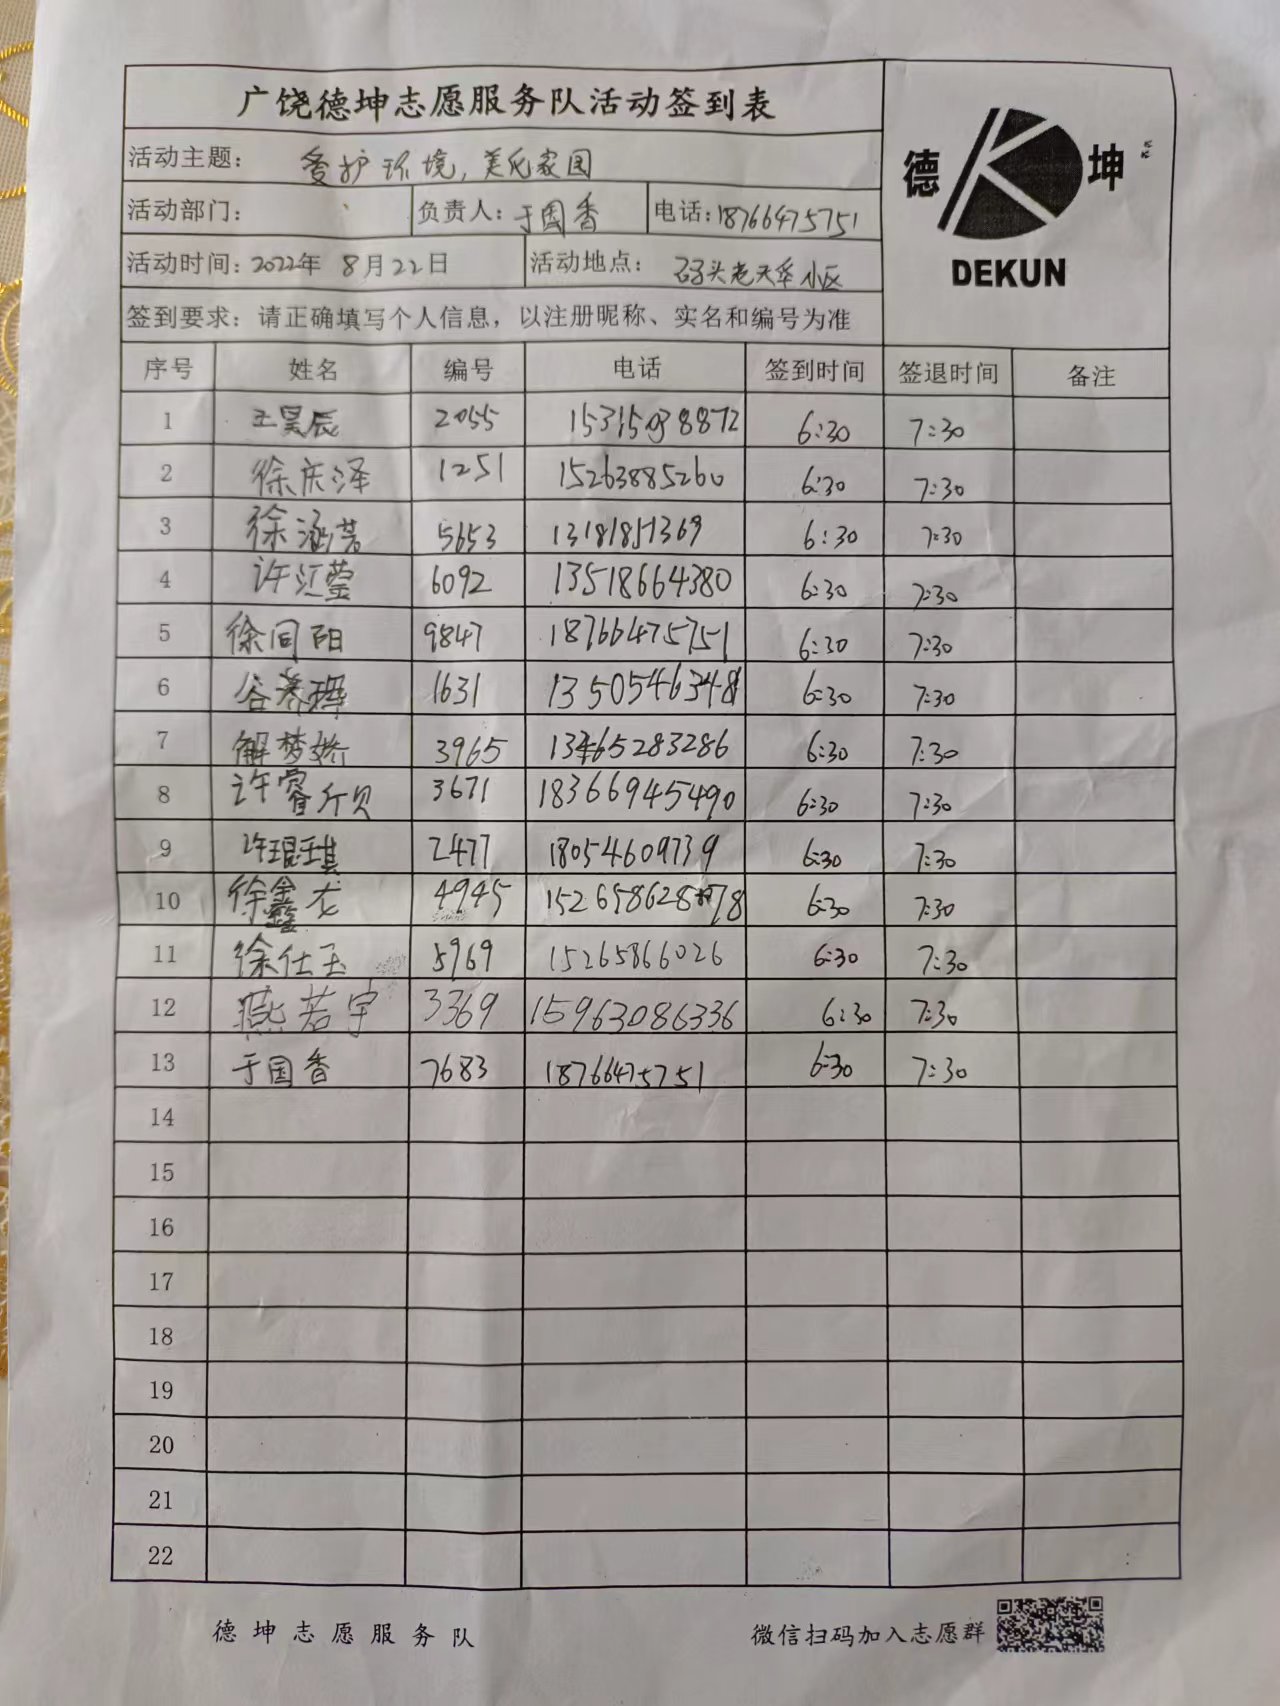 广饶德坤志愿服务队活动签到表
德 坤
DEKUN
活动主题: 爱护环境,美化家园
活动部门: 负责人: 于国香 电话: 18766475751
活动时间: 2022年 8月22日 活动地点: 码头老天华小区
签到要求: 请正确填写个人信息, 以注册昵称、实名和编号为准
序号 姓名 编号 电话 签到时间 签退时间 备注
1 王昊辰 2055 6:30 7:30
2 徐庆泽 1251 15263885260 6:30 7:30
3 徐涵茗 5653 13181851369 6:30 7:30
4 许江莹 6092 13518664380 6:30 7:30
5 徐同阳 9847 18766475751 6:30 7:30
6 1631 6:30 7:30
7 解梦娇 3965 13465283286 6:30 7:30
8 3671 18366945490 6:30 7:30
9 许琨琪 2477 18054609739 6:30 7:30
10 徐鑫龙 4945 6:30 7:30
11 徐仕玉 5969 15265866026 6:30 7:30
12 燕若宇 3369 15963086336 6:30 7:30
13 于国香 7683 18766475751 6:30 7:30
14
15
16
17
18
19
20
21
22
德坤志愿服务队 微信扫码加入志愿群